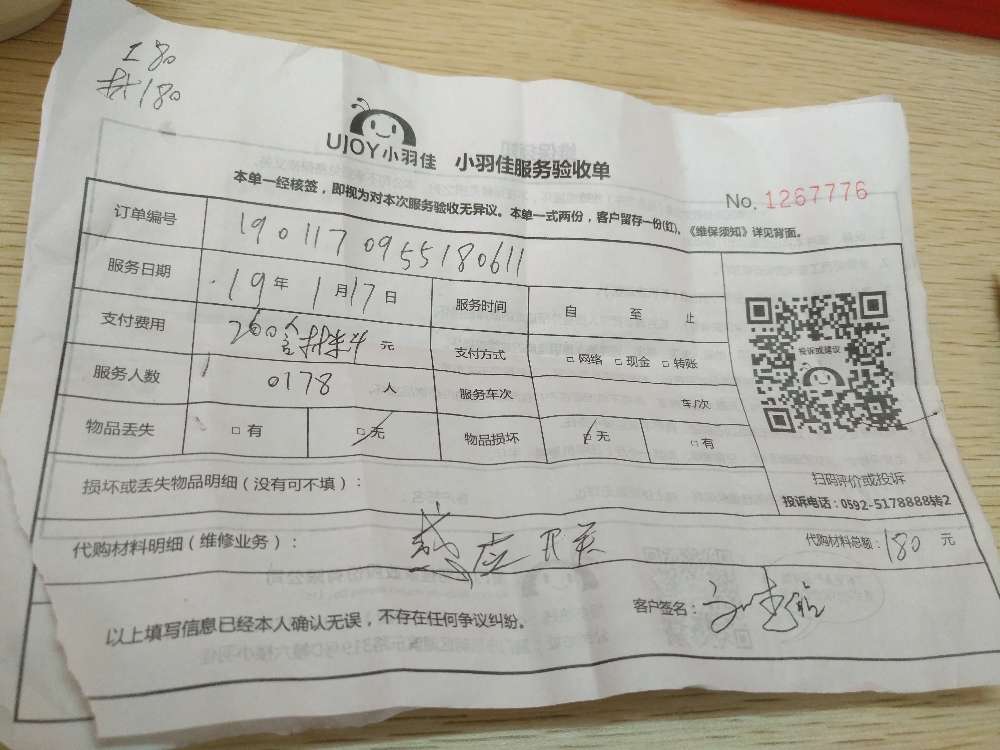 工80
材180
UJOY小羽佳 小羽佳服务验收单
No. 1267776
本单一经核签，即视为对本次服务验收无异议。本单一式两份，客户留存一份(红)。《维保须知》详见背面。
订单编号 190117 0955180611
服务日期 19年 1月17日 服务时间 自 至 止
支付费用 260含材料 元 支付方式 □网络 □现金 □转账
服务人数 0178 人 服务车次 车/次
物品丢失 □有 □无 物品损坏 □无 □有
投诉或建议
扫码评价或投诉
投诉电话：0592-5178888转2
损坏或丢失物品明细（没有可不填）：
代购材料明细（维修业务）： 感应开关 代购材料总额：180 元
以上填写信息已经本人确认无误，不存在任何争议纠纷。 客户签名：